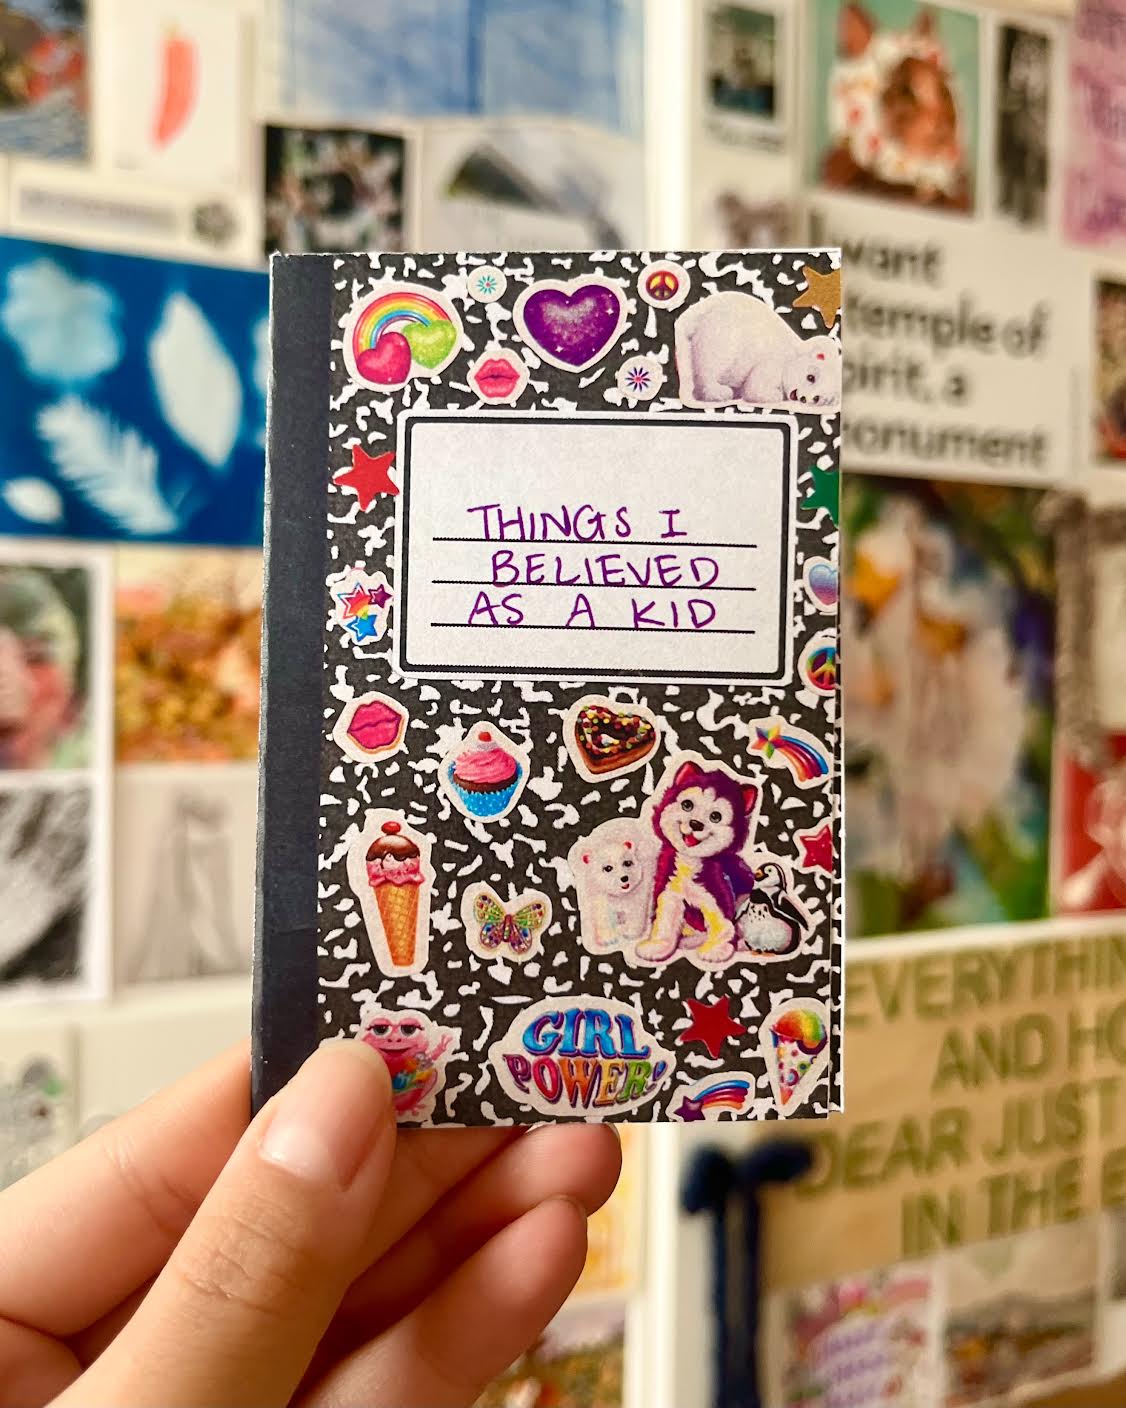 THINGS I
BELIEVED
AS A KID
GIRL
POWER!
want
temple of
spirit, a
monument
EVERYTHIN
AND HO
DEAR JUST
IN THE E